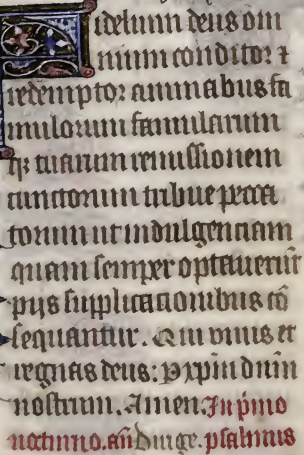 Fidelium deus om
nium conditor ⁊
redemptor animabus fa
mulorum famularum
q̄ꝫ tuarum remissionem
cunctorum tribue pecca
torum ut indulgenciam
quam semper optauerūt
pijs supplicacionibus cō
sequantur. Qui viuis et
regnas deus: P xp̄m dn̄m
nostrum. Amen. In primo
nocturno. añ Dirige. psalmus